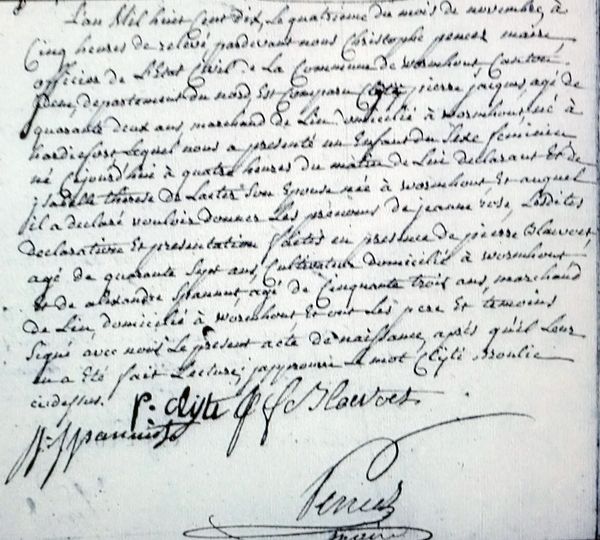 L'an Mil huit Cent dix, Le quatrieme du mois de novembre, à
Cinq heures de relevé pardevant nous Christophe maire,
officier de L'Etat Civil de La Commune de wormhout Canton
departement du nord, Est Comparu Clyti pierre jacques, agé de
quarante deux ans, marchand de Lin domicilié à wormhout né à
hardiefort Lequel nous a presenté un Enfant du Sexe féminin
né cejourd'hui à quatre heures du matin de Lui declarant Et de
isabelle therese De Laeter Son Epouse née à wormhout, Et auquel
il a declaré vouloir donner Les prénoms de jeanne rose, Lesdites
declaration Et presentation faites en presence de pierre Blawoet,
agé de quarante Sept ans, Cultivateur domicilié à wormhout,
et de alexandre agé de Cinquante trois ans, marchand
de Lin, domicilié à wormhout Et ont Les pere Et temoins
Signé avec nous Le present acte de naissance, après qu'il Leur
en a Eté fait Lecture; j'approuve Le mot Clyti
cidessus.
p. Clyti Blawoet

maire